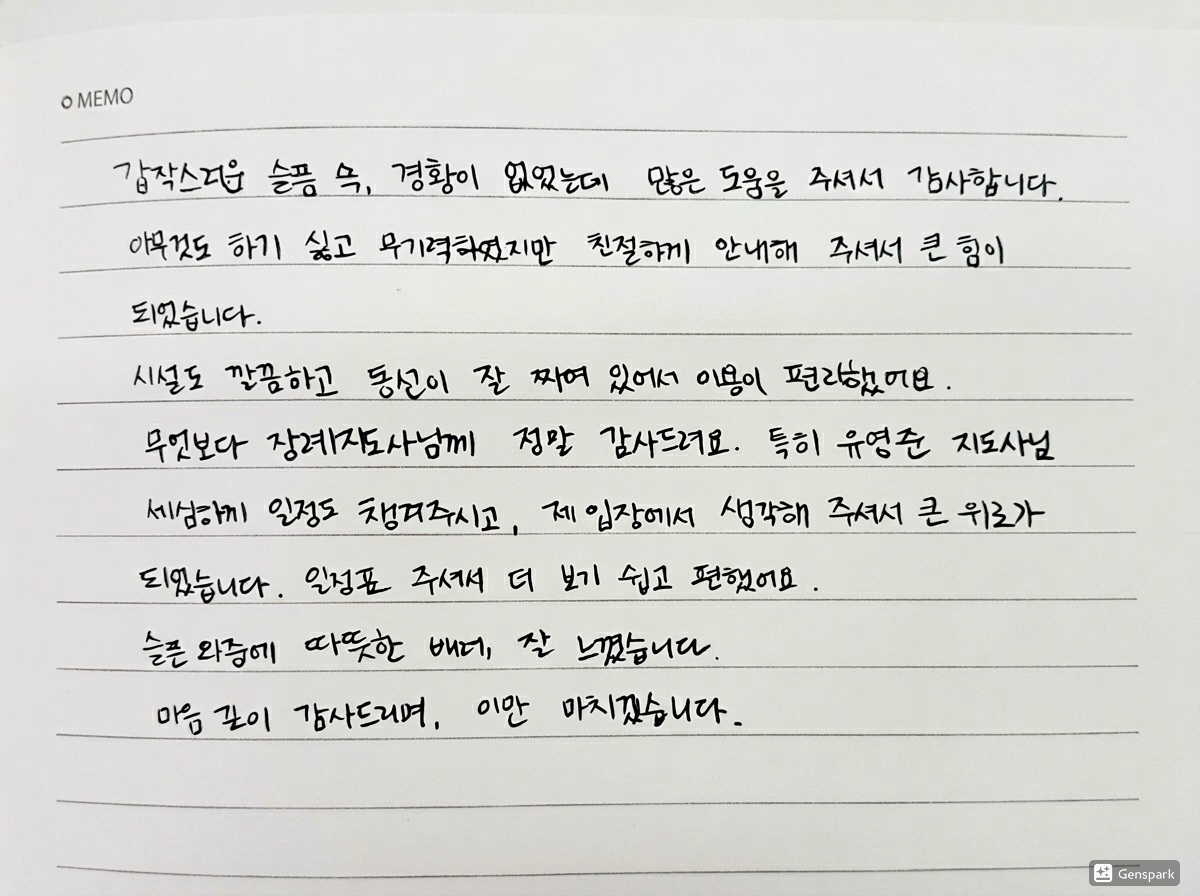 MEMO
갑작스러운 슬픔 속, 경황이 없었는데 많은 도움을 주셔서 감사합니다.
아무것도 하기 싫고 무기력하였지만 친절하게 안내해 주셔서 큰 힘이
되었습니다.
시설도 깔끔하고 동선이 잘 짜여 있어서 이용이 편리했어요.
무엇보다 장례지도사님께 정말 감사드려요. 특히 유영준 지도사님
세심하게 일정도 챙겨주시고, 제 입장에서 생각해 주셔서 큰 위로가
되었습니다. 일정표 주셔서 더 보기 쉽고 편했어요.
슬픈 와중에 따뜻한 배려, 잘 느꼈습니다.
마음 깊이 감사드리며, 이만 마치겠습니다.
Genspark